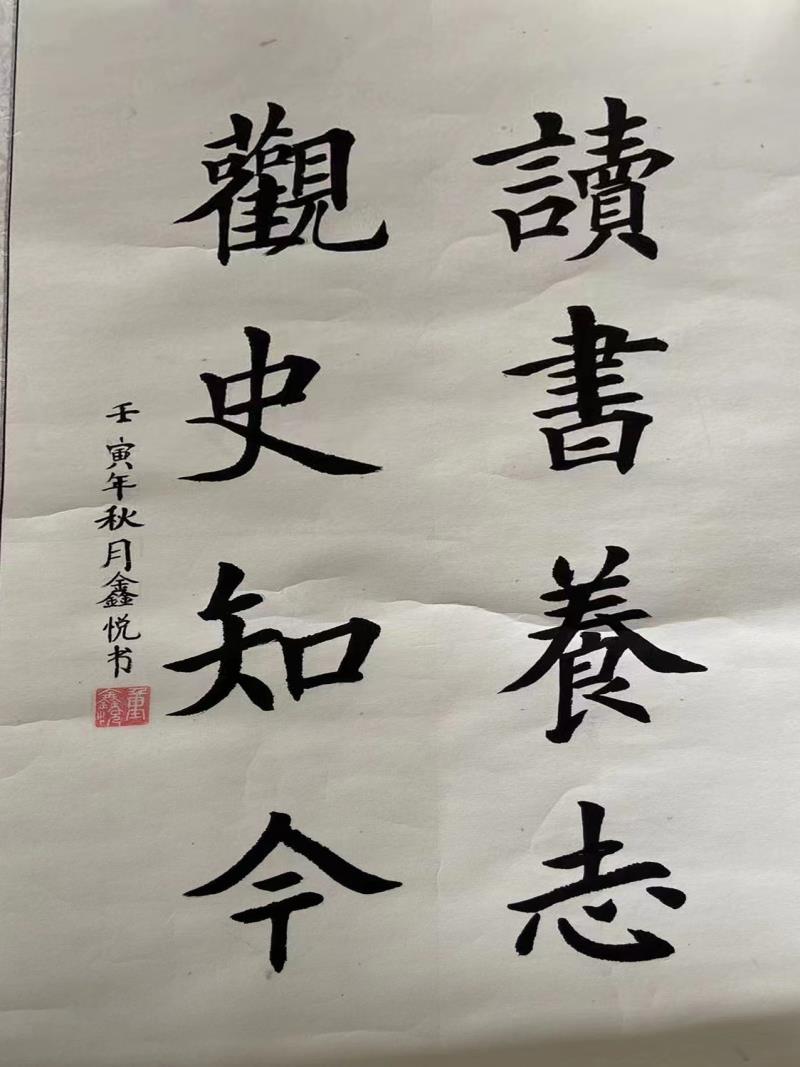 讀書養志
觀史知今
壬寅年秋月鑫悦书
董鑫悦